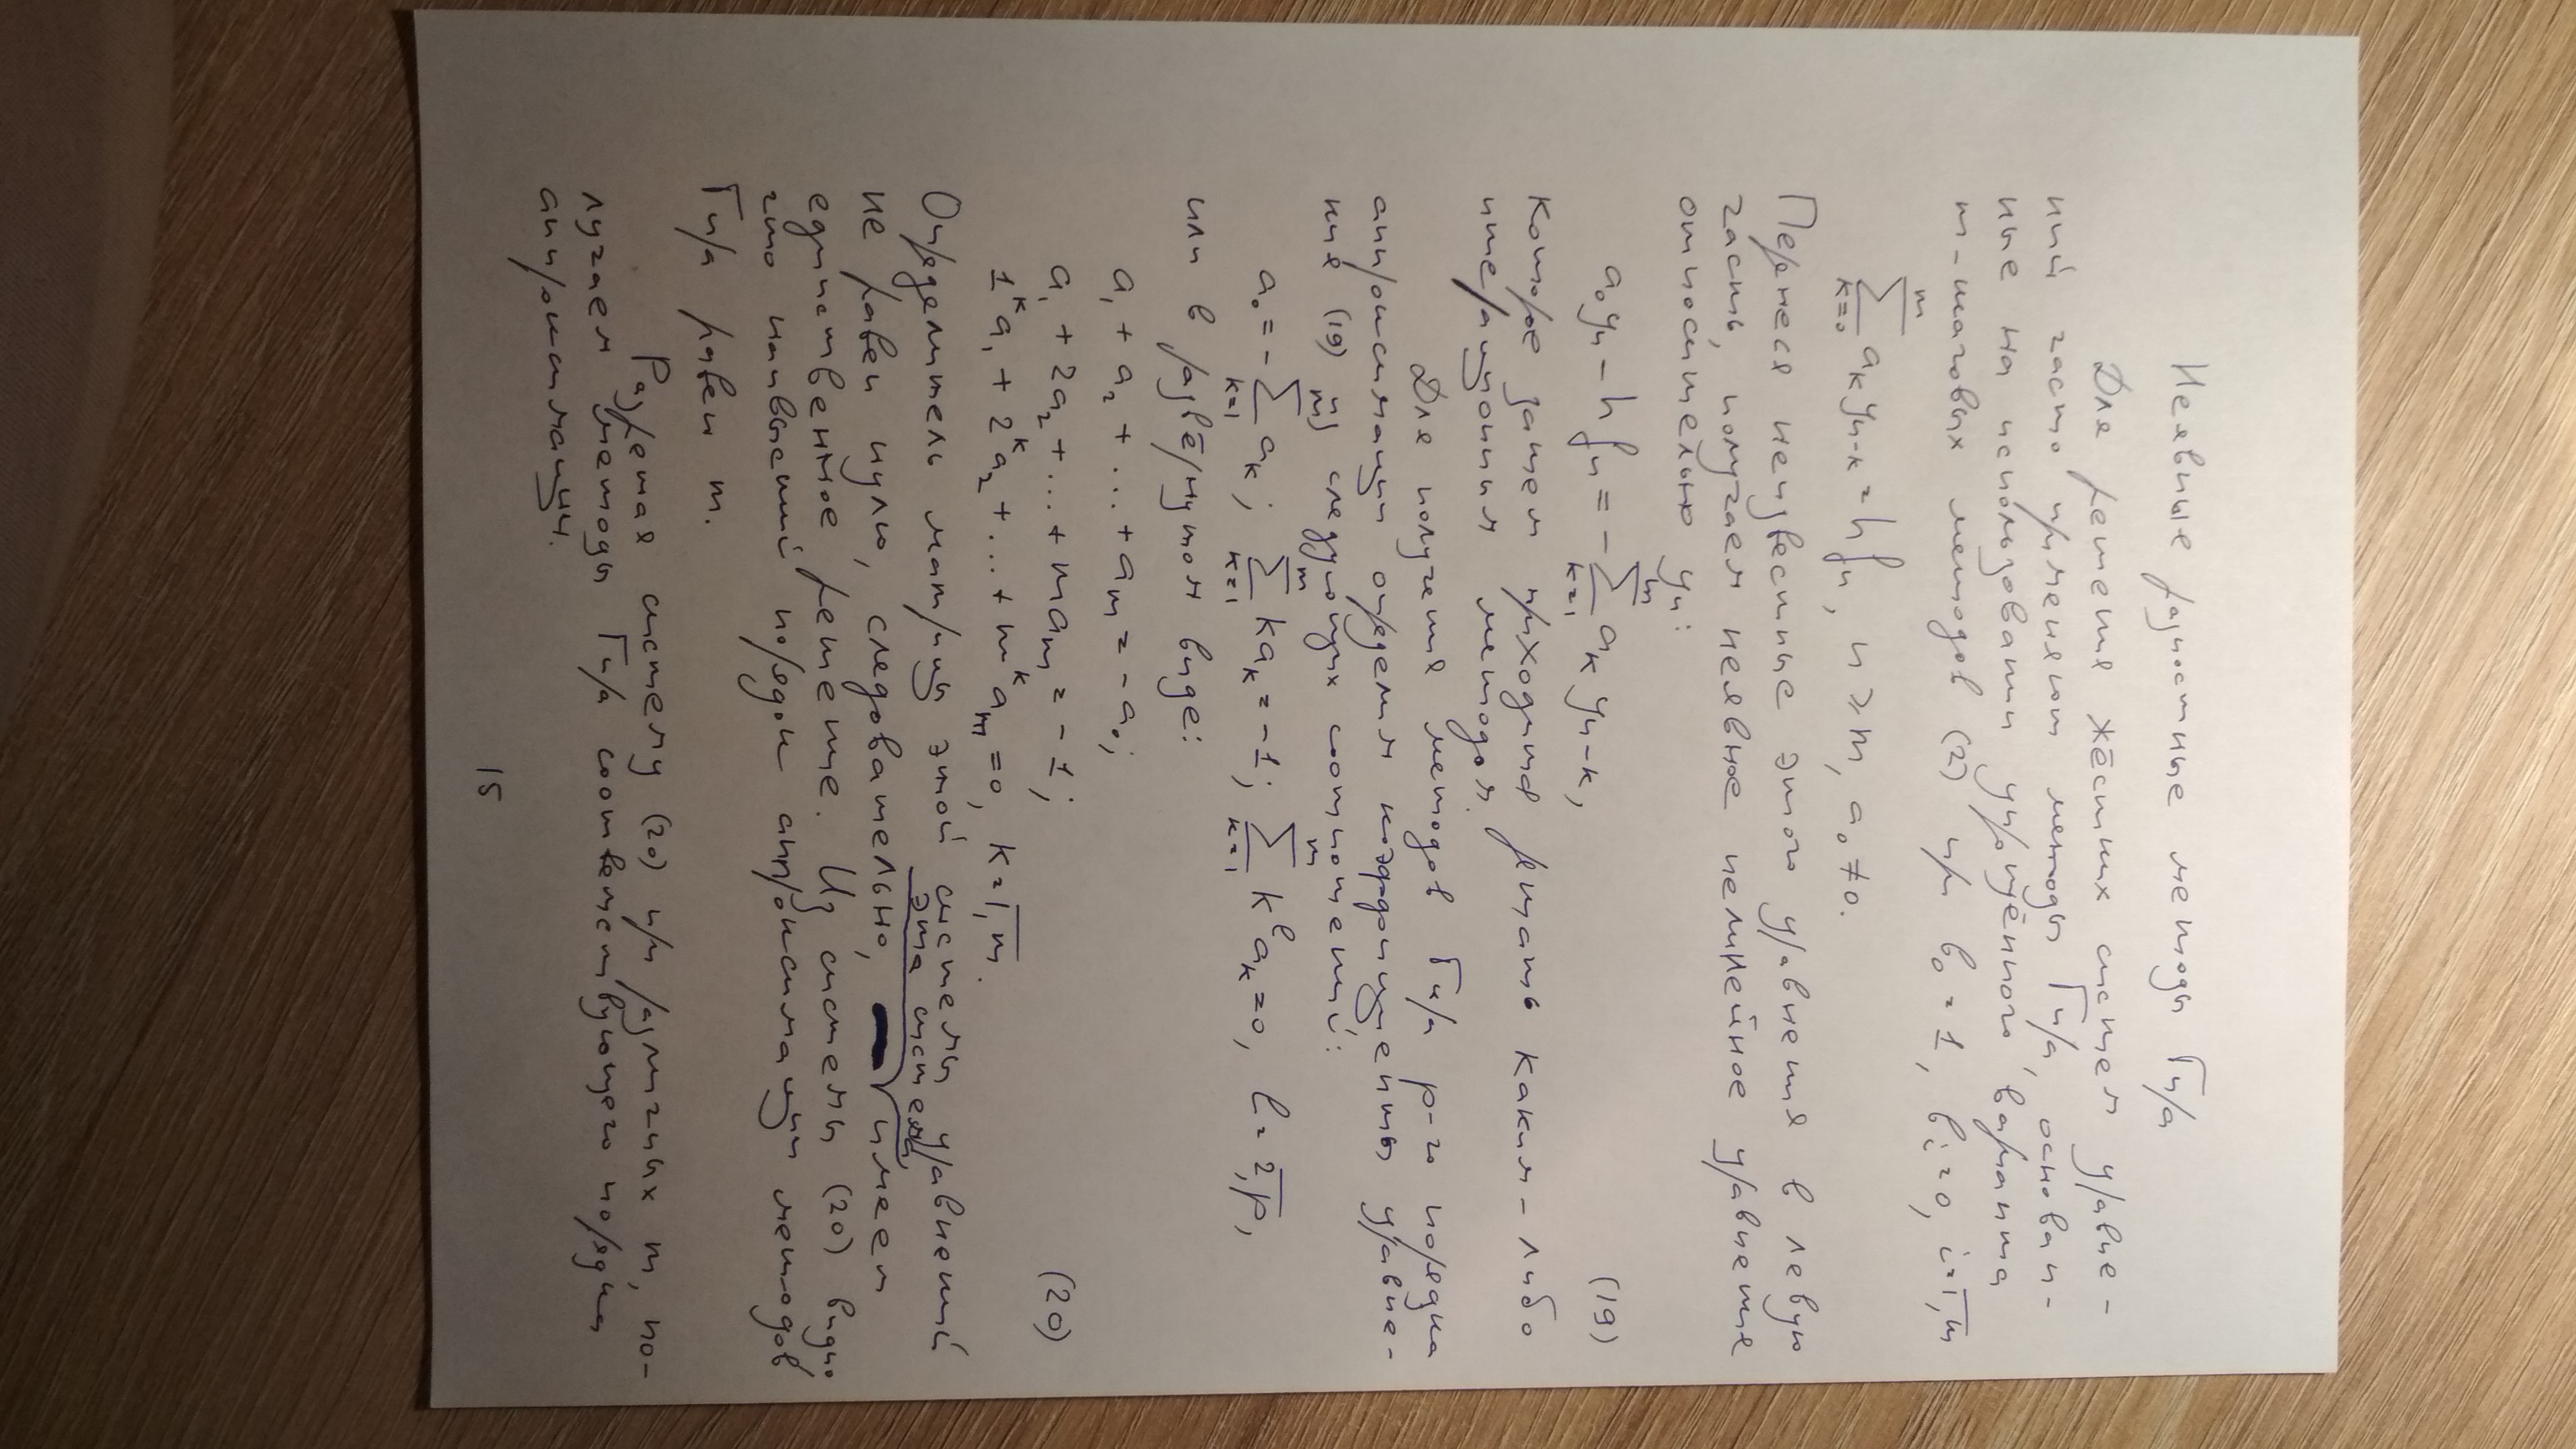 Неявные разностные методы Гира
Для решения жёстких систем уравне-
ний часто применяют методы Гира, основан-
ные на использовании упрощённого варианта
m-шаговых методов (2) при b₀ = 1, bᵢ = 0, i = 1,m
∑ₖ₌₀ᵐ aₖ yₙ₋ₖ = h fₙ, n ⩾ m, a₀ ≠ 0.
Перенеся неизвестные этого уравнения в левую
часть, получаем неявное нелинейное уравнение
относительно yₙ:
a₀yₙ − h fₙ = −∑ₖ₌₁ᵐ aₖ yₙ₋ₖ, (19)
которое затем приходится решать каким-либо
итерационным методом.
Для получения методов Гира p-го порядка
аппроксимации определим коэффициенты уравне-
ния (19) из следующих соотношений:
a₀ = −∑ₖ₌₁ᵐ aₖ; ∑ₖ₌₁ᵐ kaₖ = −1; ∑ₖ₌₁ᵐ kˡaₖ = 0, l = 2,p,
или в развёрнутом виде:
a₁ + a₂ + ... + aₘ = −a₀;
a₁ + 2a₂ + ... + maₘ = −1; (20)
1ᵏa₁ + 2ᵏa₂ + ... + mᵏaₘ = 0, k = 1,m.
Определитель матрицы этой системы уравнений
не равен нулю, следовательно, эта система имеет
единственное решение. Из системы (20) видно,
что наивысший порядок аппроксимации методов
Гира равен m.
Разрешая систему (20) при различных m, по-
лучаем методы Гира соответствующего порядка
аппроксимации.
15